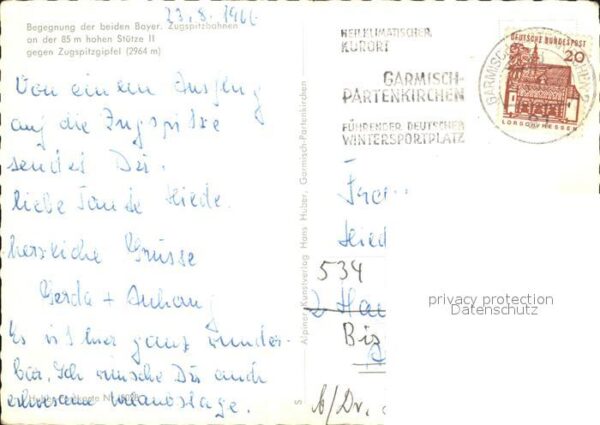 23.8.1966
Begegnung der beiden Bayer. Zugspitzbahnen
an der 85 m hohen Stütze II
gegen Zugspitzgipfel (2964 m)
Von einem Ausflug
auf die Zugspitze
sendet Dir.
liebe Tante Hiede.
herzliche Grüsse
Gerda + Anhang
Es ist hier ganz wunder-
bar. Ich wünsche Dir auch
erholsame Urlaubstage.
Alpiner Kunstverlag Hans Huber, Garmisch-Partenkirchen
S
HEILKLIMATISCHER
KURORT
GARMISCH-
PARTENKIRCHEN
FÜHRENDER DEUTSCHER
WINTERSPORTPLATZ
DEUTSCHE BUNDESPOST
20
LORSCH/HESSEN
534
2 Ha
Biz
b/Dr.
privacy protection
Datenschutz